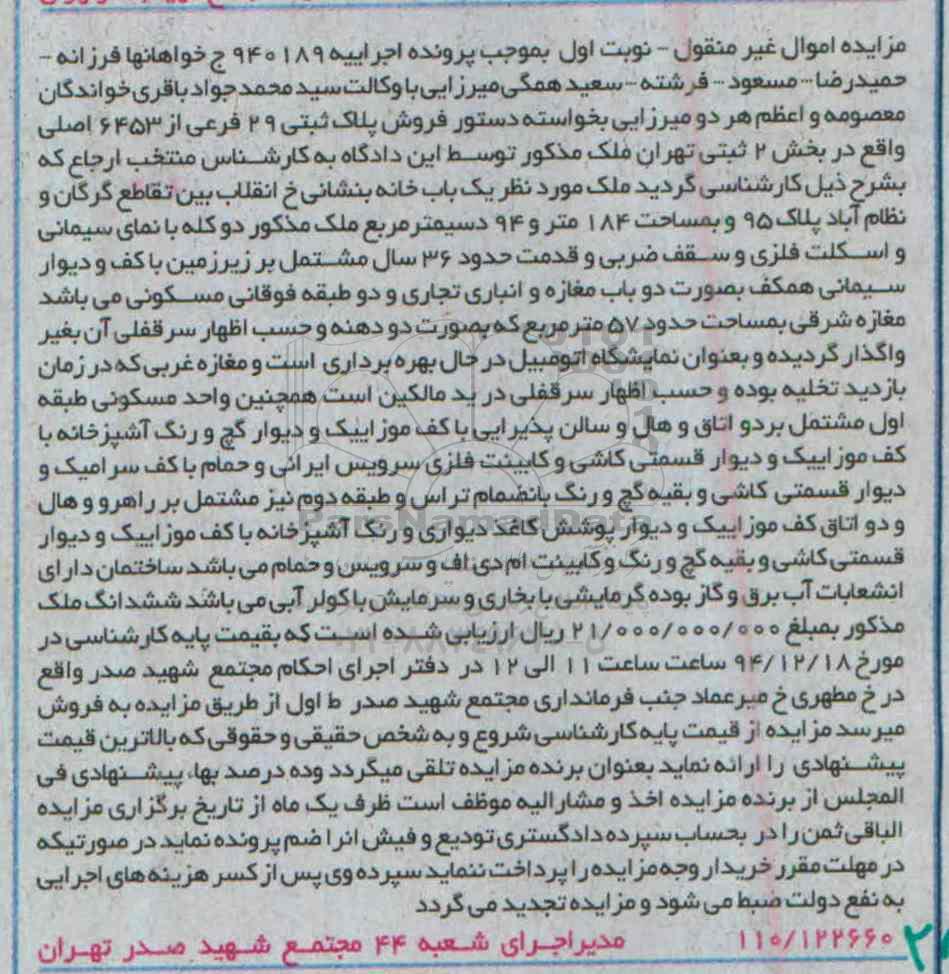 مزایده اموال غیر منقول - نوبت اول بموجب پرونده اجراییه ۹۴۰۱۸۹ ج خواهانها فرزانه -
حمیدرضا - مسعود - فرشته - سعید همگی میرزایی با وکالت سید محمد جواد باقری خواندگان
معصومه و اعظم هر دو میرزایی بخواسته دستور فروش پلاک ثبتی ۲۹ فرعی از ۶۴۵۳ اصلی
واقع در بخش ۲ ثبتی تهران ملک مذکور توسط این دادگاه به کارشناس منتخب ارجاع که
بشرح ذیل کارشناسی گردید ملک مورد نظر یک باب خانه بنشانی خ انقلاب بین تقاطع گرگان و
نظام آباد پلاک ۹۵ و بمساحت ۱۸۴ متر و ۹۴ دسیمتر مربع ملک مذکور دو کله با نمای سیمانی
و اسکلت فلزی و سقف ضربی و قدمت حدود ۳۶ سال مشتمل بر زیرزمین با کف و دیوار
سیمانی همکف بصورت دو باب مغازه و انباری تجاری و دو طبقه فوقانی مسکونی می باشد
مغازه شرقی بمساحت حدود ۵۷ متر مربع که بصورت دو دهنه و حسب اظهار سرقفلی آن بغیر
واگذار گردیده و بعنوان نمایشگاه اتومبیل در حال بهره برداری است و مغازه غربی که در زمان
بازدید تخلیه بوده و حسب اظهار سرقفلی در ید مالکین است همچنین واحد مسکونی طبقه
اول مشتمل بر دو اتاق و هال و سالن پذیرایی با کف موزاییک و دیوار گچ و رنگ آشپزخانه با
کف موزاییک و دیوار قسمتی کاشی و کابینت فلزی سرویس ایرانی و حمام با کف سرامیک و
دیوار قسمتی کاشی و بقیه گچ و رنگ بانضمام تراس و طبقه دوم نیز مشتمل بر راهرو و هال
و دو اتاق کف موزاییک و دیوار پوشش کاغذ دیواری و رنگ آشپزخانه با کف موزاییک و دیوار
قسمتی کاشی و بقیه گچ و رنگ و کابینت ام دی اف و سرویس و حمام می باشد ساختمان دارای
انشعابات آب برق و گاز بوده گرمایشی با بخاری و سرمایش با کولر آبی می باشد ششدانگ ملک
مذکور بمبلغ ۲۱/۰۰۰/۰۰۰/۰۰۰ ریال ارزیابی شده است که بقیمت پایه کارشناسی در
مورخ ۹۴/۱۲/۱۸ ساعت ساعت ۱۱ الی ۱۲ در دفتر اجرای احکام مجتمع شهید صدر واقع
در خ مطهری خ میرعماد جنب فرمانداری مجتمع شهید صدر ط اول از طریق مزایده به فروش
میرسد مزایده از قیمت پایه کارشناسی شروع و به شخص حقیقی و حقوقی که بالاترین قیمت
پیشنهادی را ارائه نماید بعنوان برنده مزایده تلقی میگردد وده درصد بهاء پیشنهادی فی
المجلس از برنده مزایده اخذ و مشارالیه موظف است ظرف یک ماه از تاریخ برگزاری مزایده
الباقی ثمن را در بحساب سپرده دادگستری تودیع و فیش انرا ضم پرونده نماید در صورتیکه
در مهلت مقرر خریدار وجه مزایده را پرداخت ننماید سپرده وی پس از کسر هزینه های اجرایی
به نفع دولت ضبط می شود و مزایده تجدید می گردد
۱۱۰/۱۲۲۶۶۰ مدیر اجرای شعبه ۴۴ مجتمع شهید صدر تهران